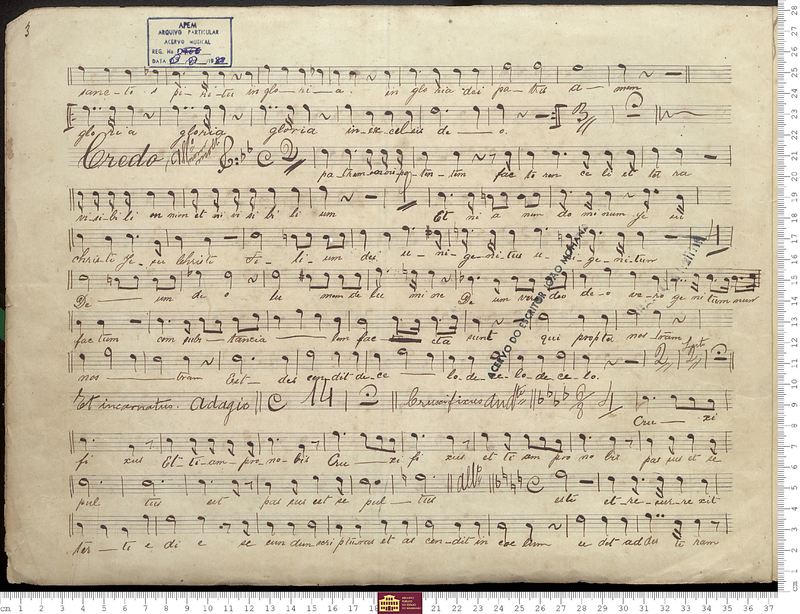 3
APEM
ARQUIVO PARTICULAR
ACERVO MUSICAL
REG. No
DATA
sanc-ti s pi-ri-tus in glo-ri-a. in glo ria dei pa-tris a-men
glo ri a gloria gloria in-ex-cel-sis de-o.
Credo
pa-trem omni po-ten-tem fac to rem ce li et ter ra
vi-si-bi li om nium et in vi si bi li um Et in u num do mi num Je su
christe Je-su Christe Fi-li-um dei u-ni-ge-ni-tus u-ni-ge-ni-tum
De-um de o lu men de lu mi ne De um vero deo de-o ve-ro ge ni tum non
factum con subs-tancia-lem fac-cta sunt qui propter nos-tram
nos-tram Et-des cen-dit de ce lo-de-ce-lo-de-ce-lo.
Et incarnatus. Adagio 14 Crucifixus Andte Cru-xi
fi xus Et-ti-am-pro-no-bis Cru-xi fi xus et ti am pro no bis pas sus et se
pul tus est pas sus est se pul-tus allo este et-re-sur-re xit
ter-ti e di e se cun dum scri pturas et as cen-dit in coe lum se det ad dex te ram
ACERVO DO ESCRITOR JOÃO MOHANA
cm 1 2 3 4 5 6 7 8 9 10 11 12 13 14 15 16 17 18 21 22 23 24 25 26 27 28 29 30 31 32 33 34 35 36 37
28
27
26
25
24
23
22
21
20
19
18
17
16
15
14
13
12
11
10
9
8
7
6
5
4
3
2
1
cm